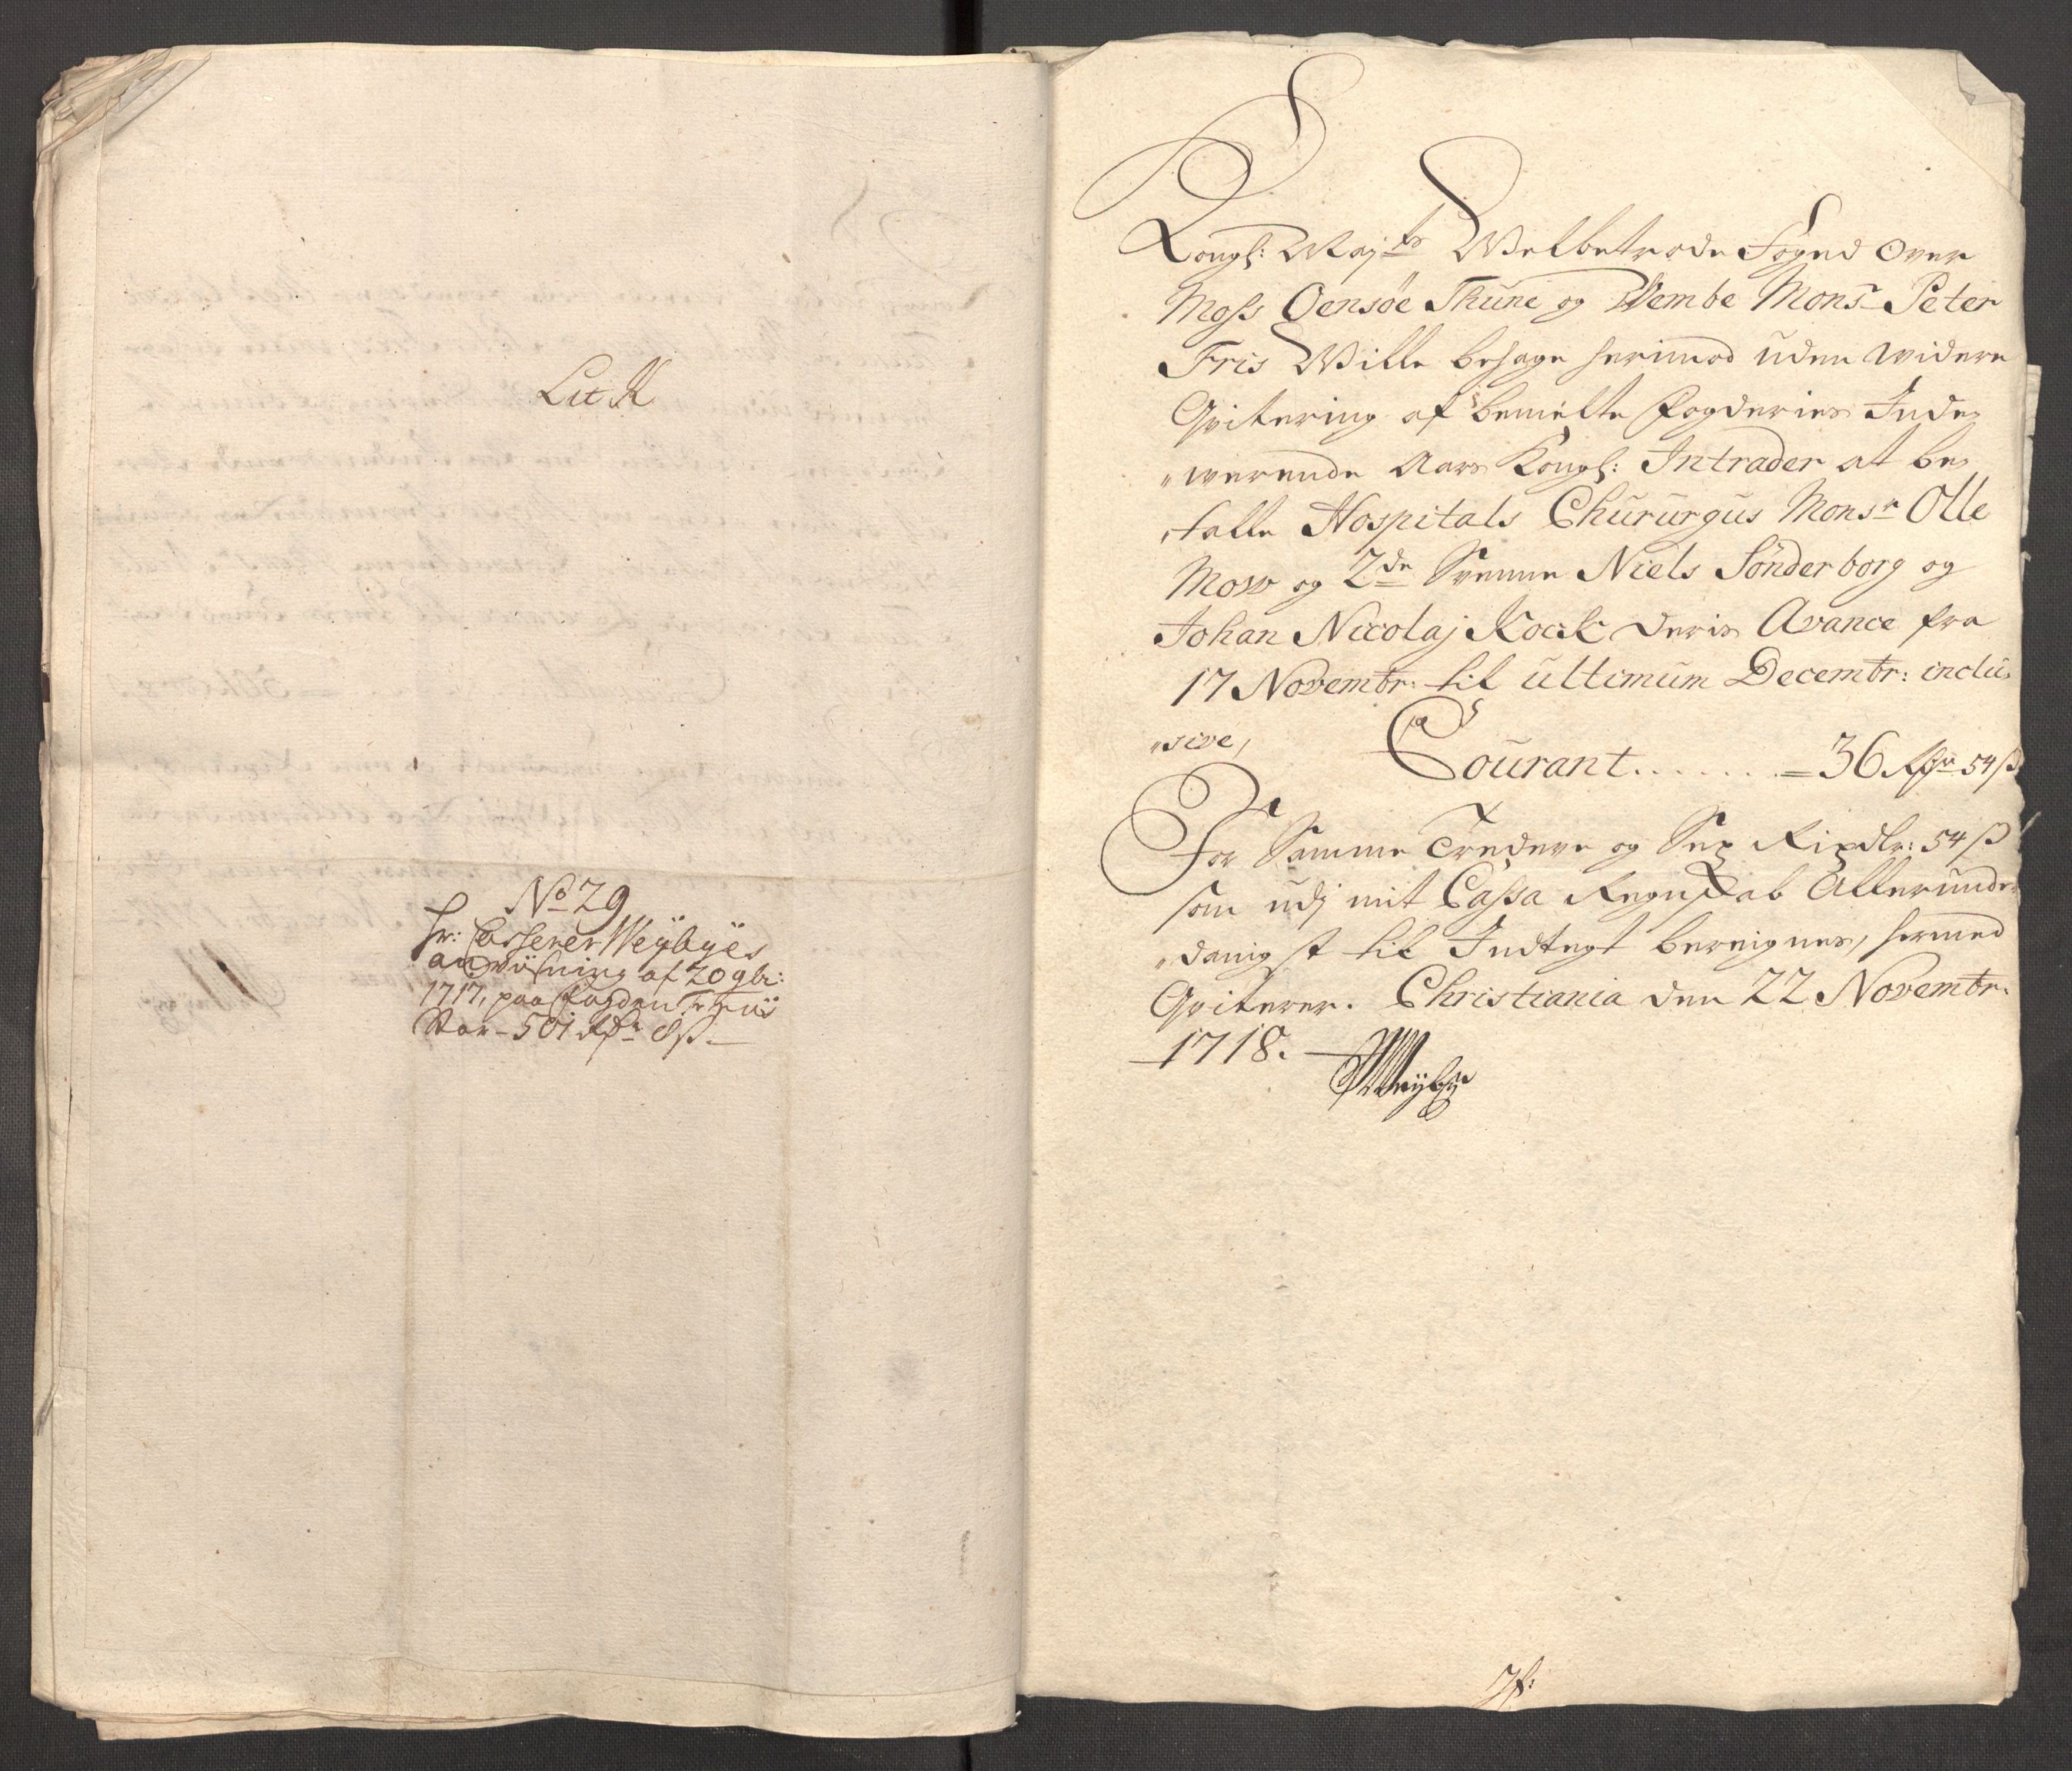 Lit K
No 29
hr: Casserer Weybyes
anviisning af 20 9br:
1717, paa fogden
Stor - 501 Rdr 8 ß
Kongl: Maj:ts Welbetrode Foged over
Moss Oensøe Thune og Wembe Monsr Peter
Fris Wille behage herimod uden widere
Qvitering af bemelte Fogderies Inde
„werende Aars Kongl: Intrader at be
„talle Hospitals Chururgus Monsr Olle
Mow og 2de Svenne Niels Sönderborg og
Johan Nicolaj Kock deris Avance fra
17 Novembr: til ultimum Decembr: inclu
„sive,
Courant . . . . . . . = 36 Rdr 54 ß
For Samme Tredeve og Sex Rixdlr: 54 ß
som udj mit Cassa Regnskab Allerunde
„danigst til Indtegt bereignes, hermed
Qviterer. Christiania den 22 Novembr.
1718.
Weybye